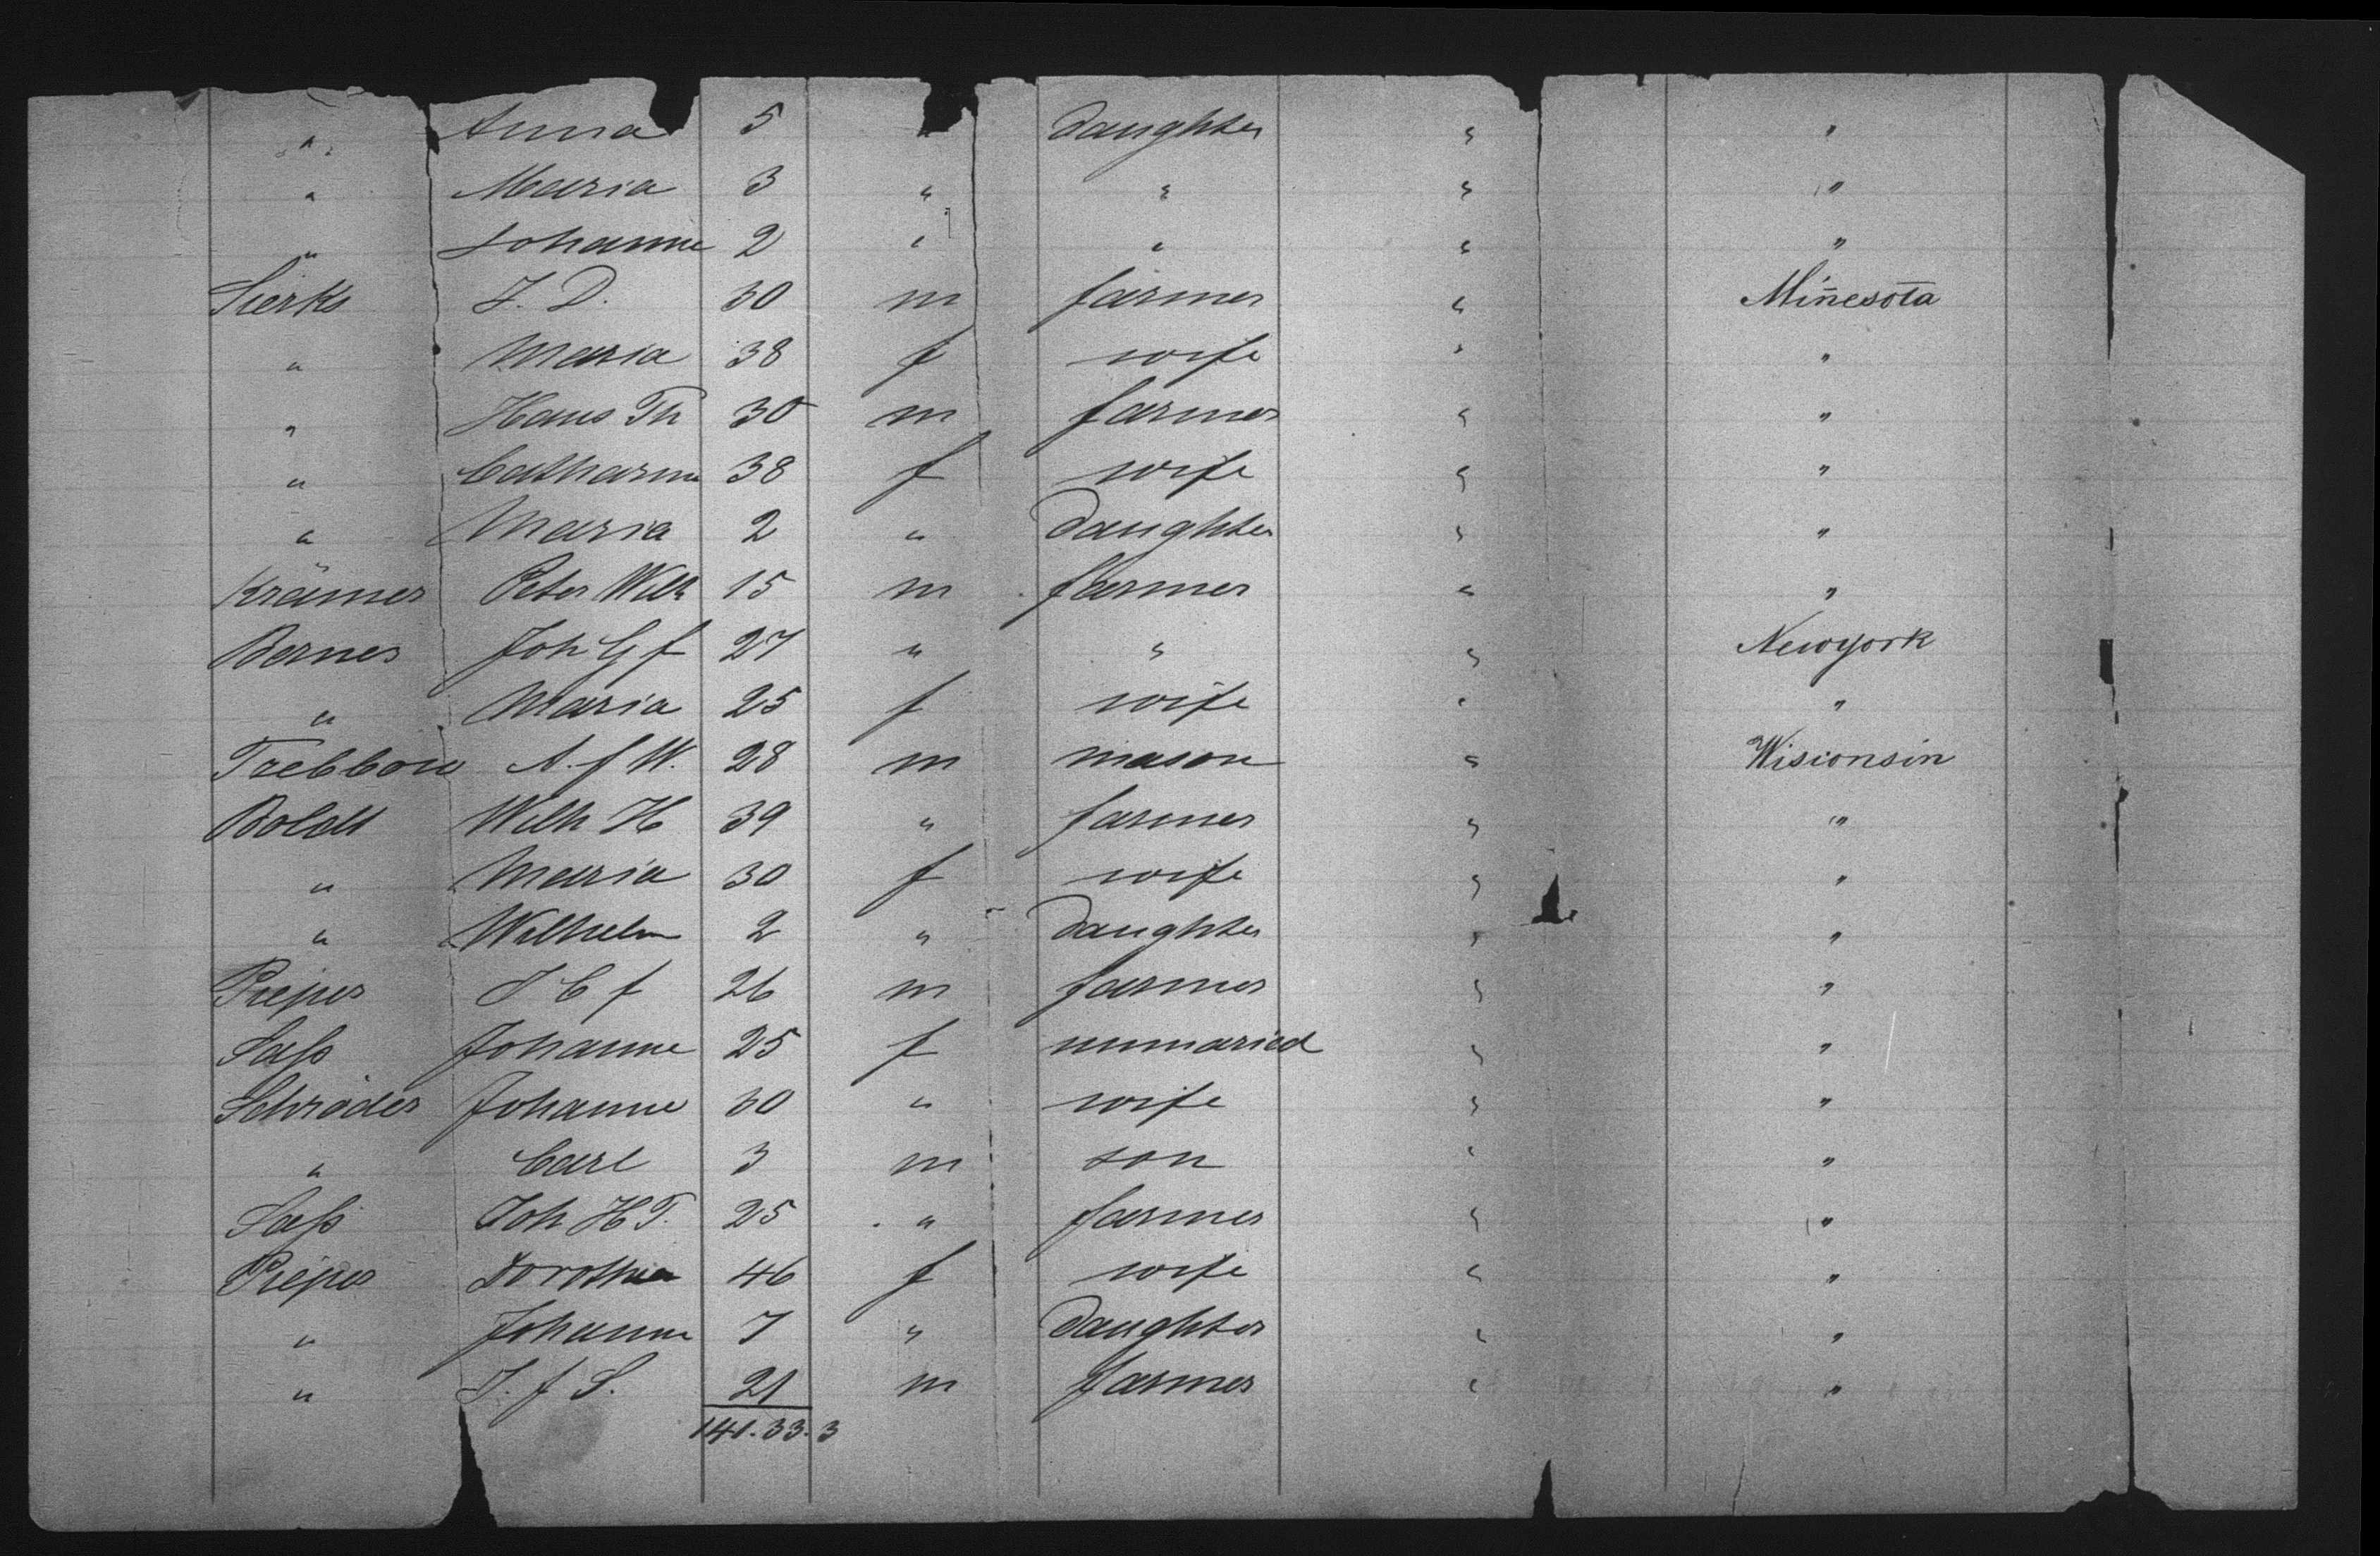 " Anna 5 " daughter " "
" Maria 3 " " " "
" Johanne 2 " " " "
Sierks J. D. 30 m farmer " Minesota
" Maria 38 f wife " "
" Hans Th 30 m farmer " "
" Catharine 38 f wife " "
" Maria 2 " daughter " "
Krämer Peter Wilh 15 m farmer " "
Berner Joh G f 27 " " " Newyork
" Maria 25 f wife " "
Trebbow A. f W. 28 m mason " Wisionsin
Boldt Wilh H 39 " farmer " "
" Maria 30 f wife " "
" Wilhelm 2 " daughter " "
Pieper J C f 26 m farmer " "
Saß Johanne 25 f unmaried " "
Schröder Johanne 30 " wife " "
" Carl 3 m son " "
Saß Joh H T. 25 " farmer " "
Pieper Dorothea 46 f wife " "
" Johanne 7 " daughter " "
" J. f S. 21 m farmer " "
141.33.3